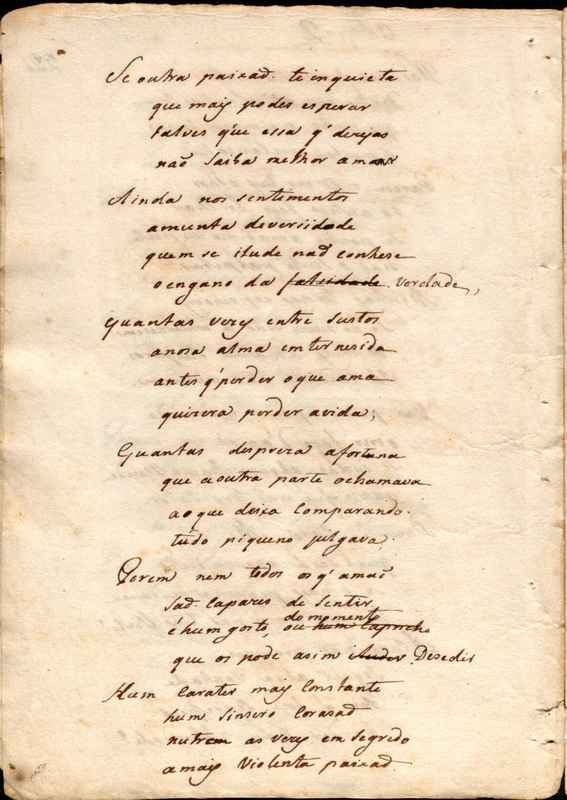 Se outra paixad. te inquieta
que mais podes esperar
talves q'ue essa q' dezejas
naõ saiba melhor amar
Ainda nos sentementos
amunta deversidade
quem se ilude naõ conhese
o engano da falsidade verdade,
Quantas vezes entre sustos
anosa alma emternesida
antes q' perder o que ama
quizera perder avida,
Quantas despreza afortuna
que a outra parte o chamava
ao que deixa Comparando.
tudo piqueno julgava,
Porem nem todos os q' amaõ
saõ Capazes de Sentir,
do momento
é hum gosto, ou hum Capricho
que os pode asim iludir Desedir
Hum Carater mais Constante
hum Sinsero Corasaõ
nutrem as vezes em segredo
a mais Violenta paixaõ.